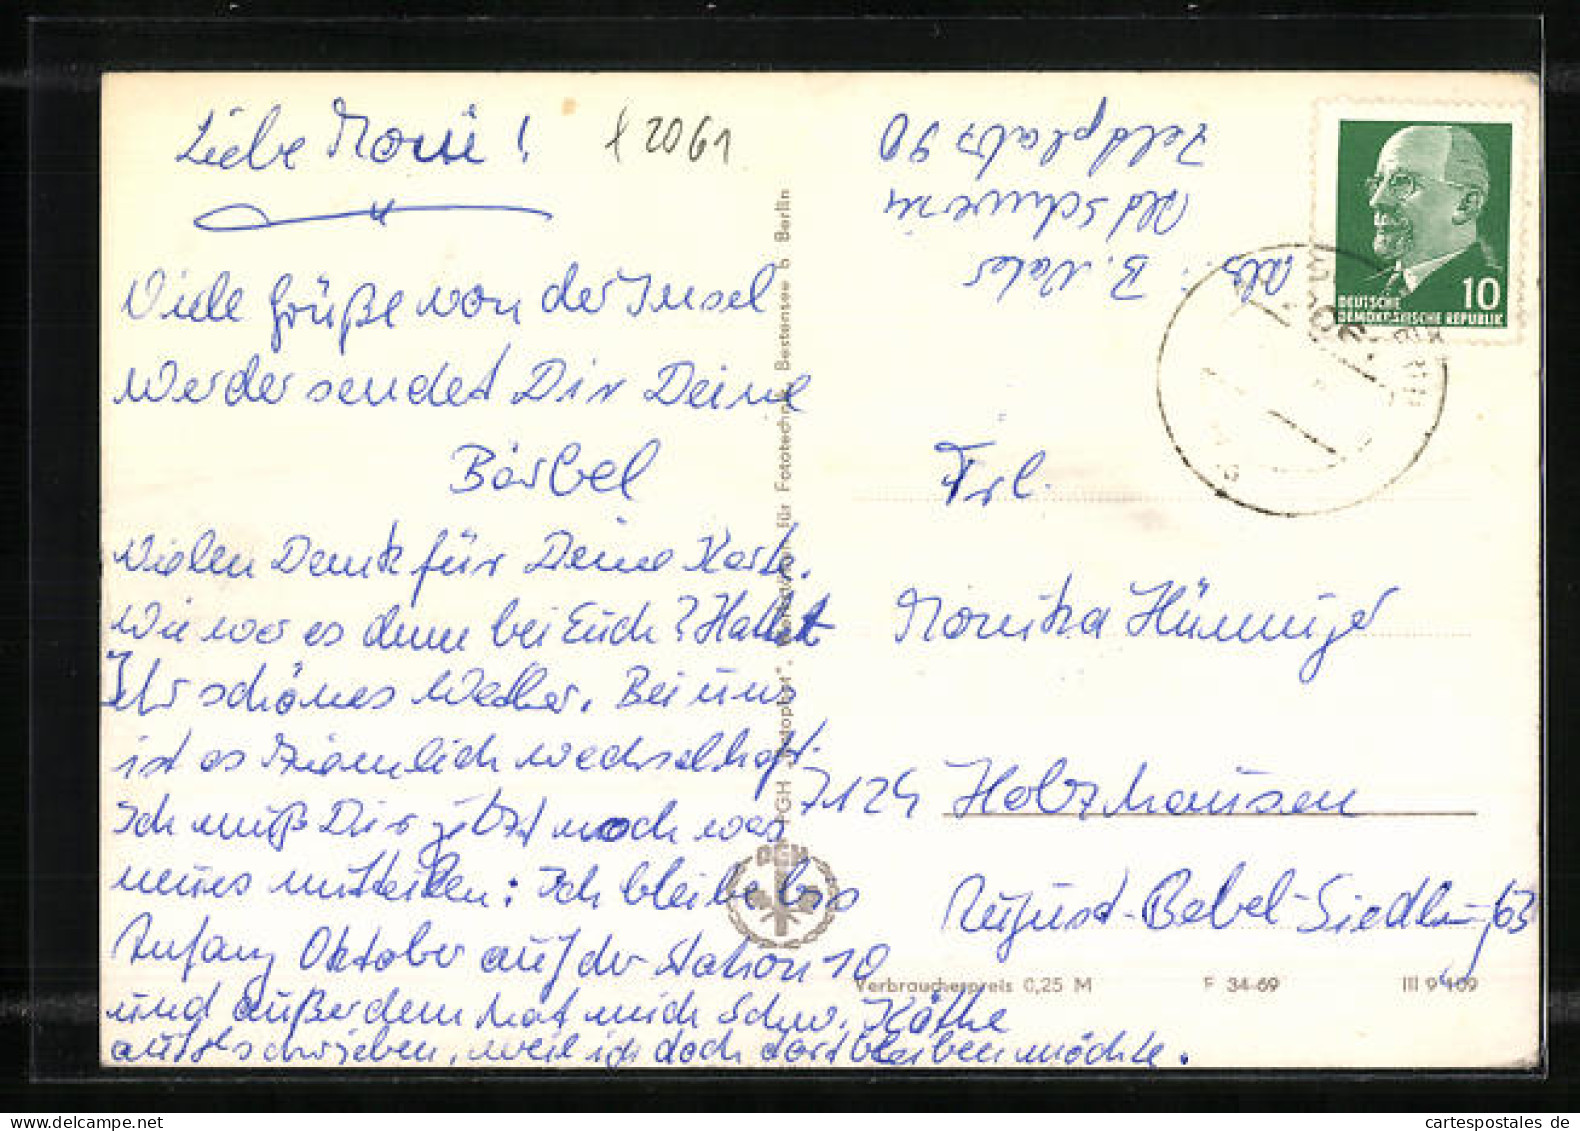 Liebe Moni! f 2061
Viele Grüße von der Insel
Werder sendet Dir Deine
Bärbel
Vielen Dank für Deine Karte.
Wie war es denn bei Euch? Hattet
Ihr schönes Wetter. Bei uns
ist es ziemlich wechselhaft.
Ich muß Dir jetzt noch was
neues mitteilen: Ich bleibe bis
Anfang Oktober auf der Station 10
und außerdem hat mich Schw. Käthe
aufgeschrieben, weil ich doch dort bleiben möchte.
für Fototechnik Bestensee b Berlin
PGH
Abs.: B.
Alt Schwerin
Feldplatz 90
10
DEUTSCHE
DEMOKRATISCHE REPUBLIK
Frl.
Monika
7124 Holzhausen
August-Bebel-Siedlung 63
Verbraucherpreis 0,25 M F 34-69 III 9 109
cartespostales de